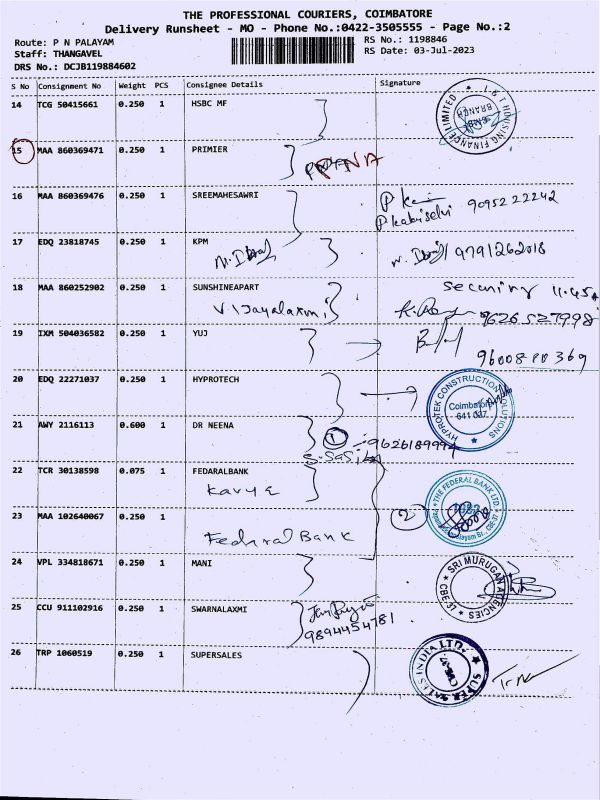 THE PROFESSIONAL COURIERS, COIMBATORE
Delivery Runsheet - MO - Phone No.:0422-3505555 - Page No.:2
Route: P N PALAYAM
RS No.: 1198846
Staff: THANGAVEL
RS Date: 03-Jul-2023
DRS No.: DCJB119884602
S No Consignment No Weight PCS Consignee Details Signature
14 TCG 50415661 0.250 1 HSBC MF
HOUSING FINANCE LIMITED
BRANCH
15 MAA 860369471 0.250 1 PRIMIER
16 MAA 860369476 0.250 1 SREEMAHESAWRI
9095222242
P kabiselvi
17 EDQ 23818745 0.250 1 KPM
9791262018
18 MAA 860252902 0.250 1 SUNSHINEAPART
Vijayalaxmi
9626527998
19 IXM 504036582 0.250 1 YUJ
20 EDQ 22271037 0.250 1 HYPROTECH
HYPROTEK CONSTRUCTION SOLUTIONS
Coimbatore
641 037
21 AWY 2116113 0.600 1 DR NEENA
1 9626189994
22 TCR 30138598 0.075 1 FEDARALBANK
Kavya
THE FEDERAL BANK LTD.
23 MAA 102640067 0.250 1
2
Federal Bank
24 VPL 334818671 0.250 1 MANI
SRI MURUGAN AGENCIES
CBE-37
25 CCU 911102916 0.250 1 SWARNALAXMI
9894454781
26 TRP 1060519 0.250 1 SUPERSALES
SUPER SALES INDIA LTD.